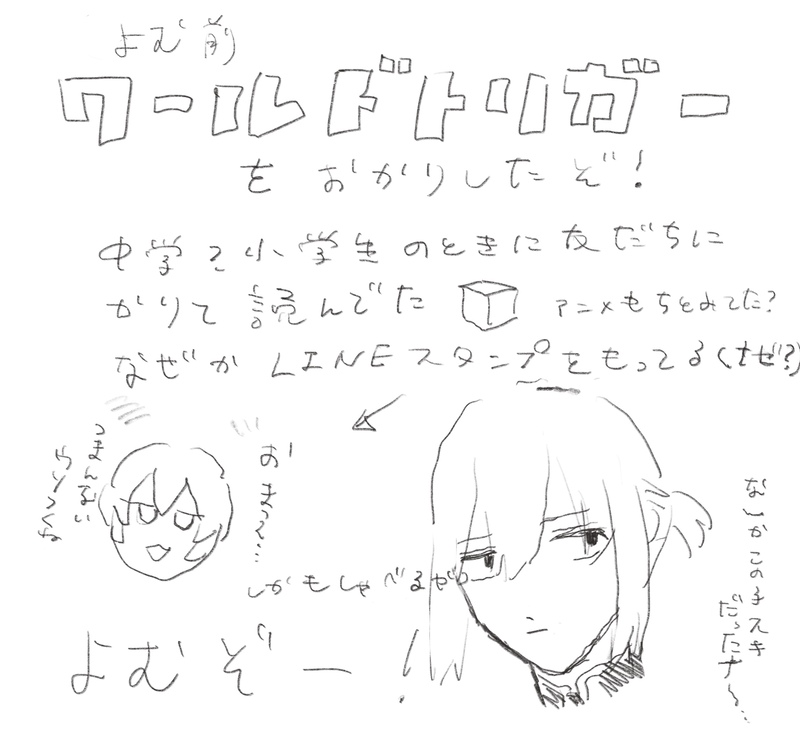 よむ前
ワールドトリガー
をおかりしたぞ!
中学?小学生のときに友だちに
かりて読んでた
アニメもちとみてた?
なぜかLINEスタンプをもってる(ナゼ?)
つまんない
ウソつくよ
おまえ…
しかもしゃべるやつ
なんかこの子スキ
だったナ〜…
よむぞー!